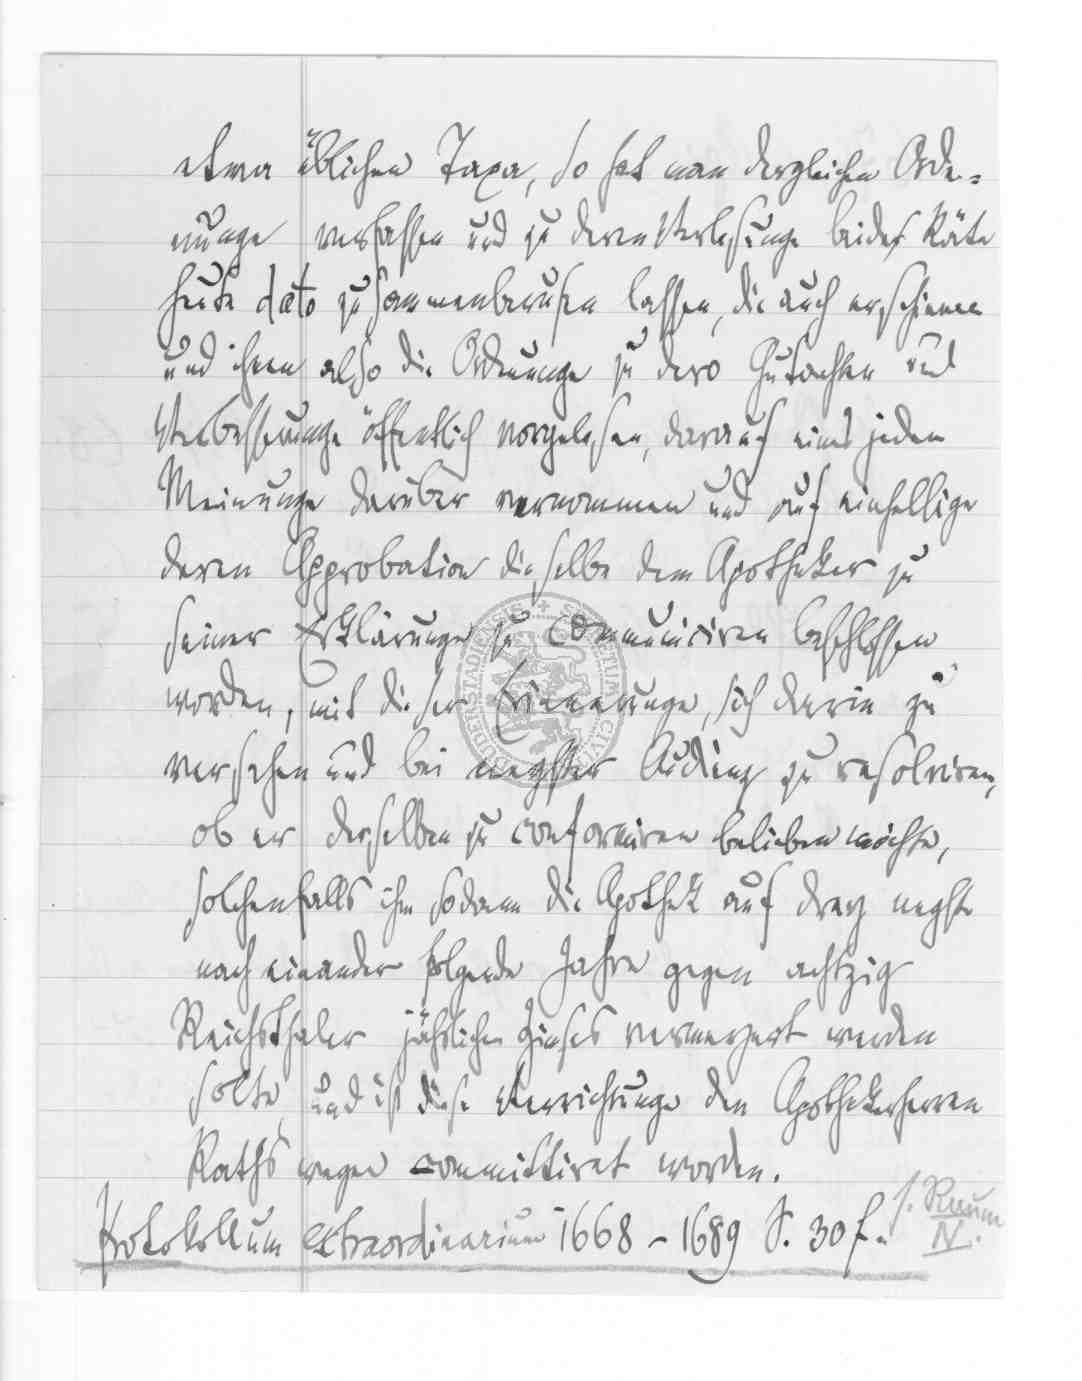 etwa üblichen Taxa, so hat man dergleichen Orde-
nunge verfassen und zu deren Verlesunge beides Räte
heute dato zusammenberufen lassen, die auch erschienen
und ihnen also die Ordnunge zu dero Gutachten und
Verbesserunge öffentlich vorgelesen, darauf eines jeden
Meinunge darüber vernommen und auf einhellige
deren Approbation dieselbe dem Apotheker zu
seiner Erklärunge zu communiciren beschlossen
worden, mit dieser Erinnerunge, sich darin zu
versehen und bei negster Audienz zu resolviren,
ob er derselben zu conformiren belieben möchte,
solchenfalls ihm sodann die Apothek auf drey negste
nach einander folgende Jahre gegen achtzig
Reichsthaler jährlichen Zinses vermeyert werden
solte, und ist diese Verrichtunge den Apothekerherren
Raths wegen committiret worden.
Protokollum extraordinarium 1668 - 1689 S. 30 f.
s. Raum
N.
SECRETUM CIVI STADIENSIS